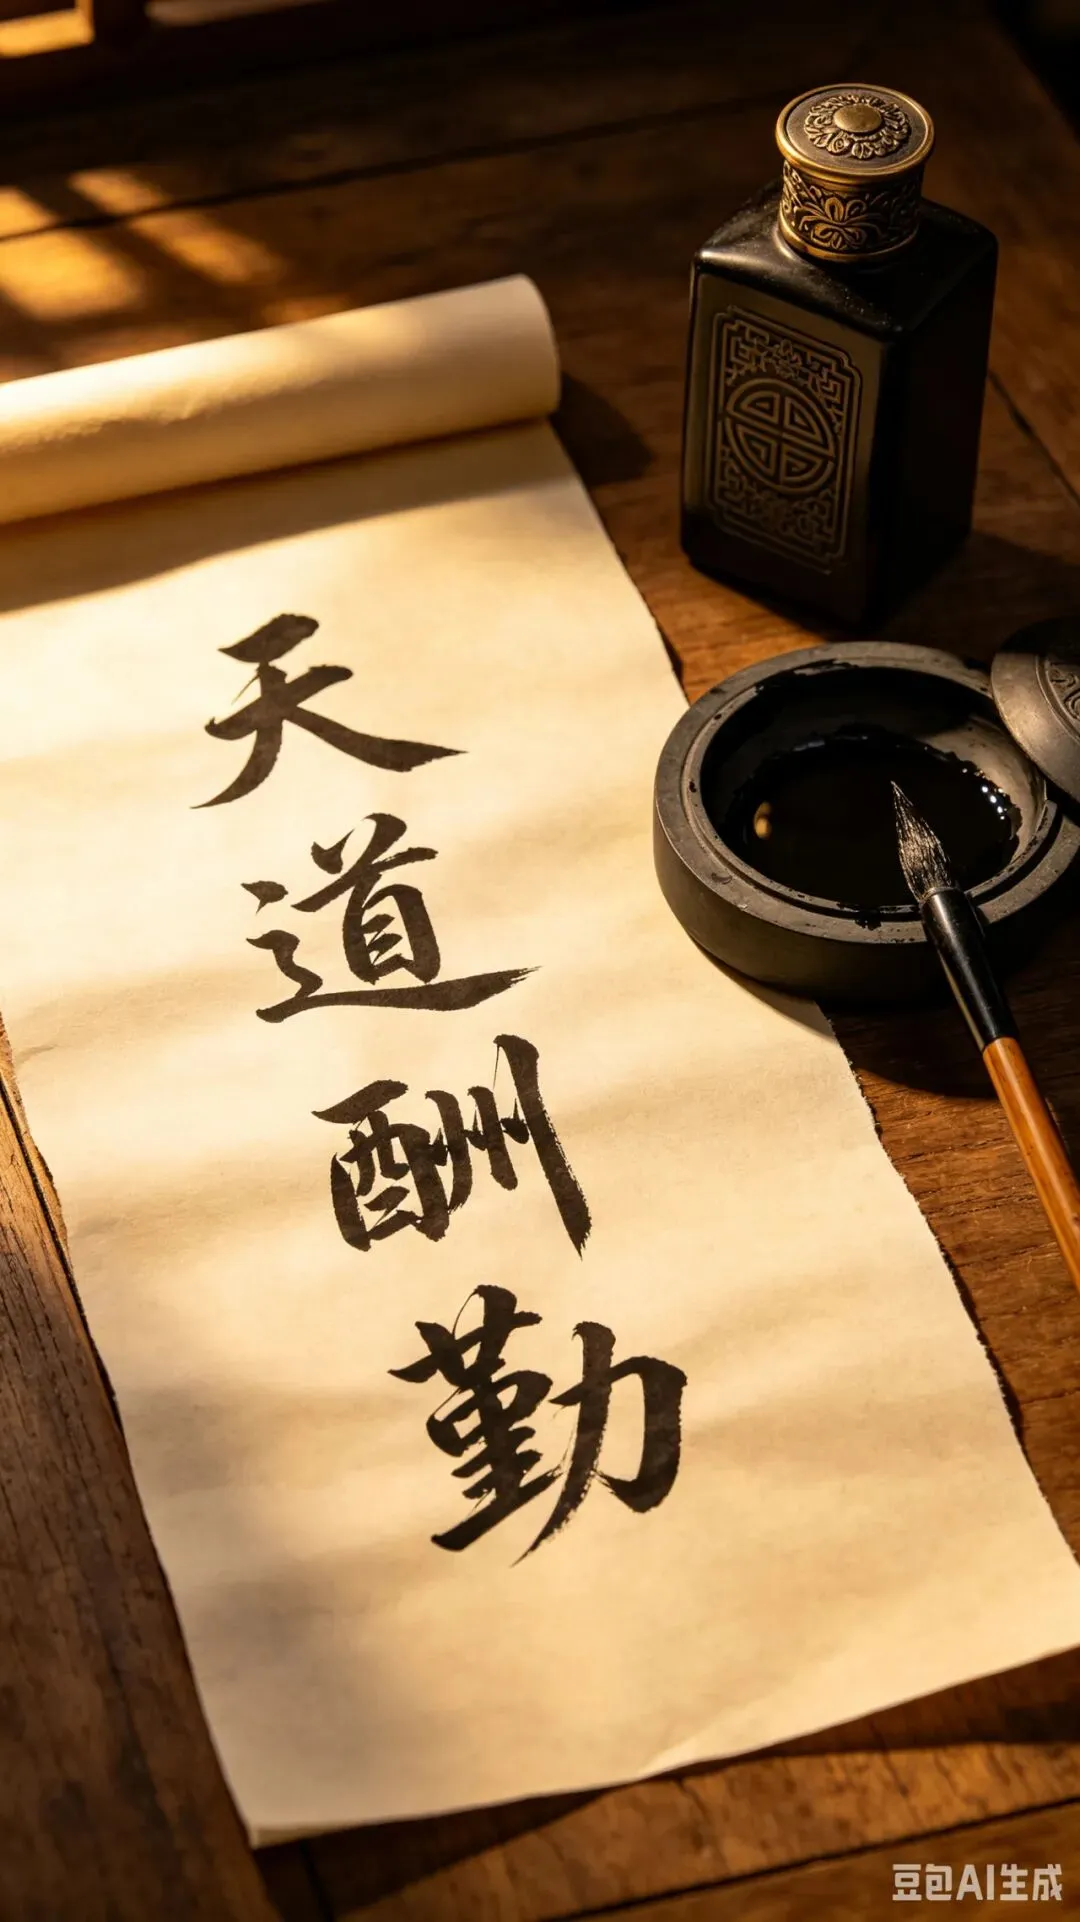 天道酬勤
豆包AI生成